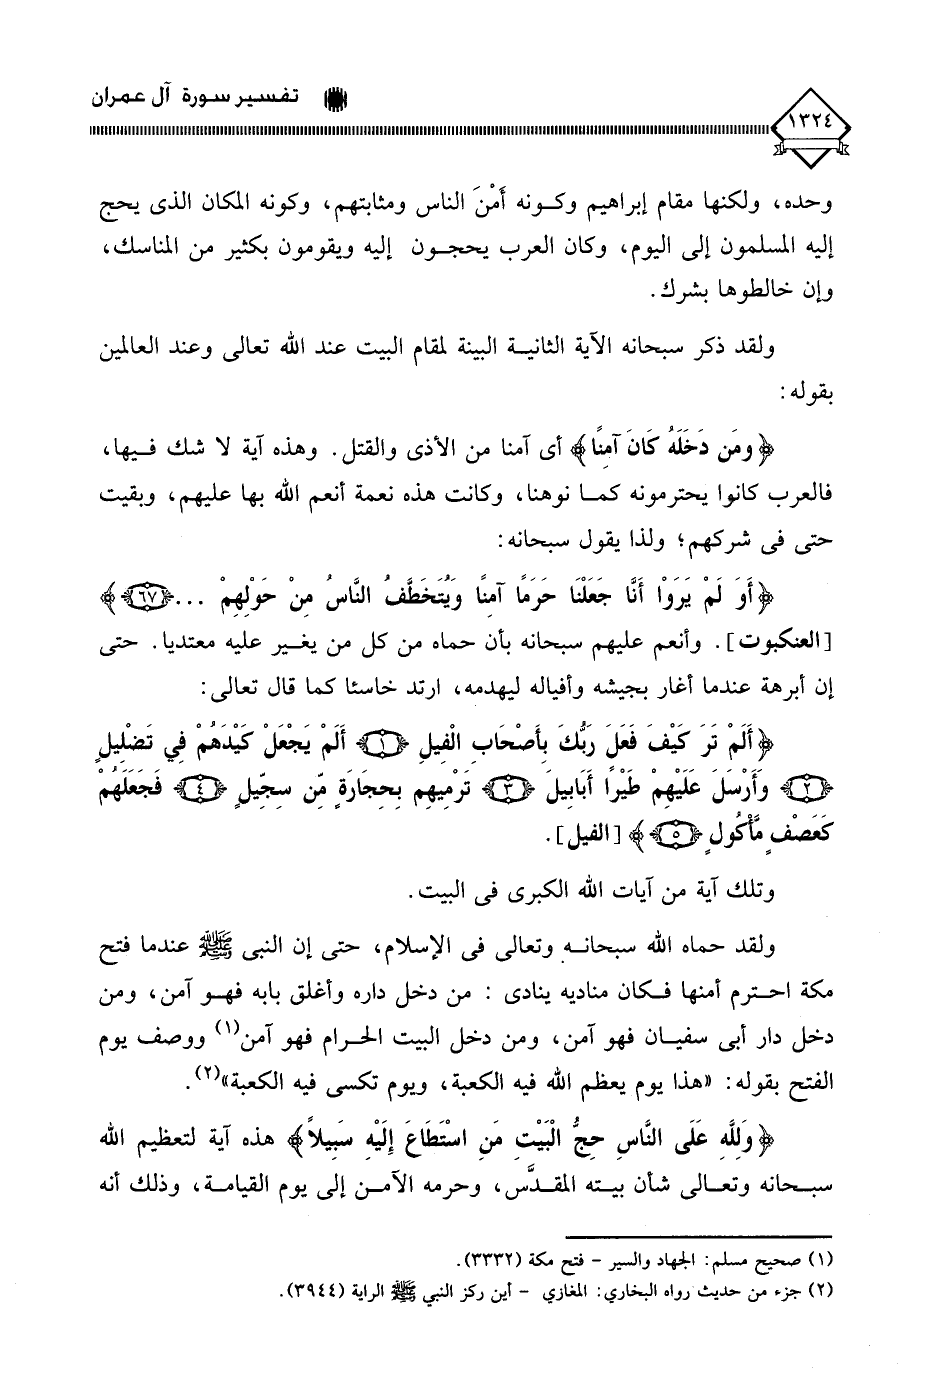 ١٣٢٤
تفسير سورة آل عمران
وحده، ولكنها مقام إبراهيم وكونه أَمْنَ الناس ومثابتهم، وكونه المكان الذى يحج
إليه المسلمون إلى اليوم، وكان العرب يحجون إليه ويقومون بكثير من المناسك،
وإن خالطوها بشرك.
ولقد ذكر سبحانه الآية الثانية البينة لمقام البيت عند الله تعالى وعند العالمين
بقوله:
﴿وَمَن دَخَلَهُ كَانَ آمِنًا﴾ أى آمنا من الأذى والقتل. وهذه آية لا شك فيها،
فالعرب كانوا يحترمونه كما نوهنا، وكانت هذه نعمة أنعم الله بها عليهم، وبقيت
حتى فى شركهم؛ ولذا يقول سبحانه:
﴿أَوَ لَمْ يَرَوْا أَنَّا جَعَلْنَا حَرَمًا آمِنًا وَيُتَخَطَّفُ النَّاسُ مِنْ حَوْلِهِمْ ... ٦٧﴾
[العنكبوت]. وأنعم عليهم سبحانه بأن حماه من كل من يغير عليه معتديا. حتى
إن أبرهة عندما أغار بجيشه وأفياله ليهدمه، ارتد خاسئا كما قال تعالى:
﴿أَلَمْ تَرَ كَيْفَ فَعَلَ رَبُّكَ بِأَصْحَابِ الْفِيلِ ١ أَلَمْ يَجْعَلْ كَيْدَهُمْ فِي تَضْلِيلٍ
٢ وَأَرْسَلَ عَلَيْهِمْ طَيْرًا أَبَابِيلَ ٣ تَرْمِيهِم بِحِجَارَةٍ مِّن سِجِّيلٍ ٤ فَجَعَلَهُمْ
كَعَصْفٍ مَّأْكُولٍ ٥﴾ [الفيل].
وتلك آية من آيات الله الكبرى فى البيت.
ولقد حماه الله سبحانه وتعالى فى الإسلام، حتى إن النبى ﷺ عندما فتح
مكة احترم أمنها فكان مناديه ينادى : من دخل داره وأغلق بابه فهو آمن، ومن
دخل دار أبى سفيان فهو آمن، ومن دخل البيت الحرام فهو آمن(١) ووصف يوم
الفتح بقوله: «هذا يوم يعظم الله فيه الكعبة، ويوم تكسى فيه الكعبة»(٢).
﴿وَلِلَّهِ عَلَى النَّاسِ حِجُّ الْبَيْتِ مَنِ اسْتَطَاعَ إِلَيْهِ سَبِيلاً﴾ هذه آية لتعظيم الله
سبحانه وتعالى شأن بيته المقدَّس، وحرمه الآمن إلى يوم القيامة، وذلك أنه
(١) صحيح مسلم: الجهاد والسير - فتح مكة (٣٣٣٢).
(٢) جزء من حديث رواه البخاري: المغازي - أين ركز النبي ﷺ الراية (٣٩٤٤).